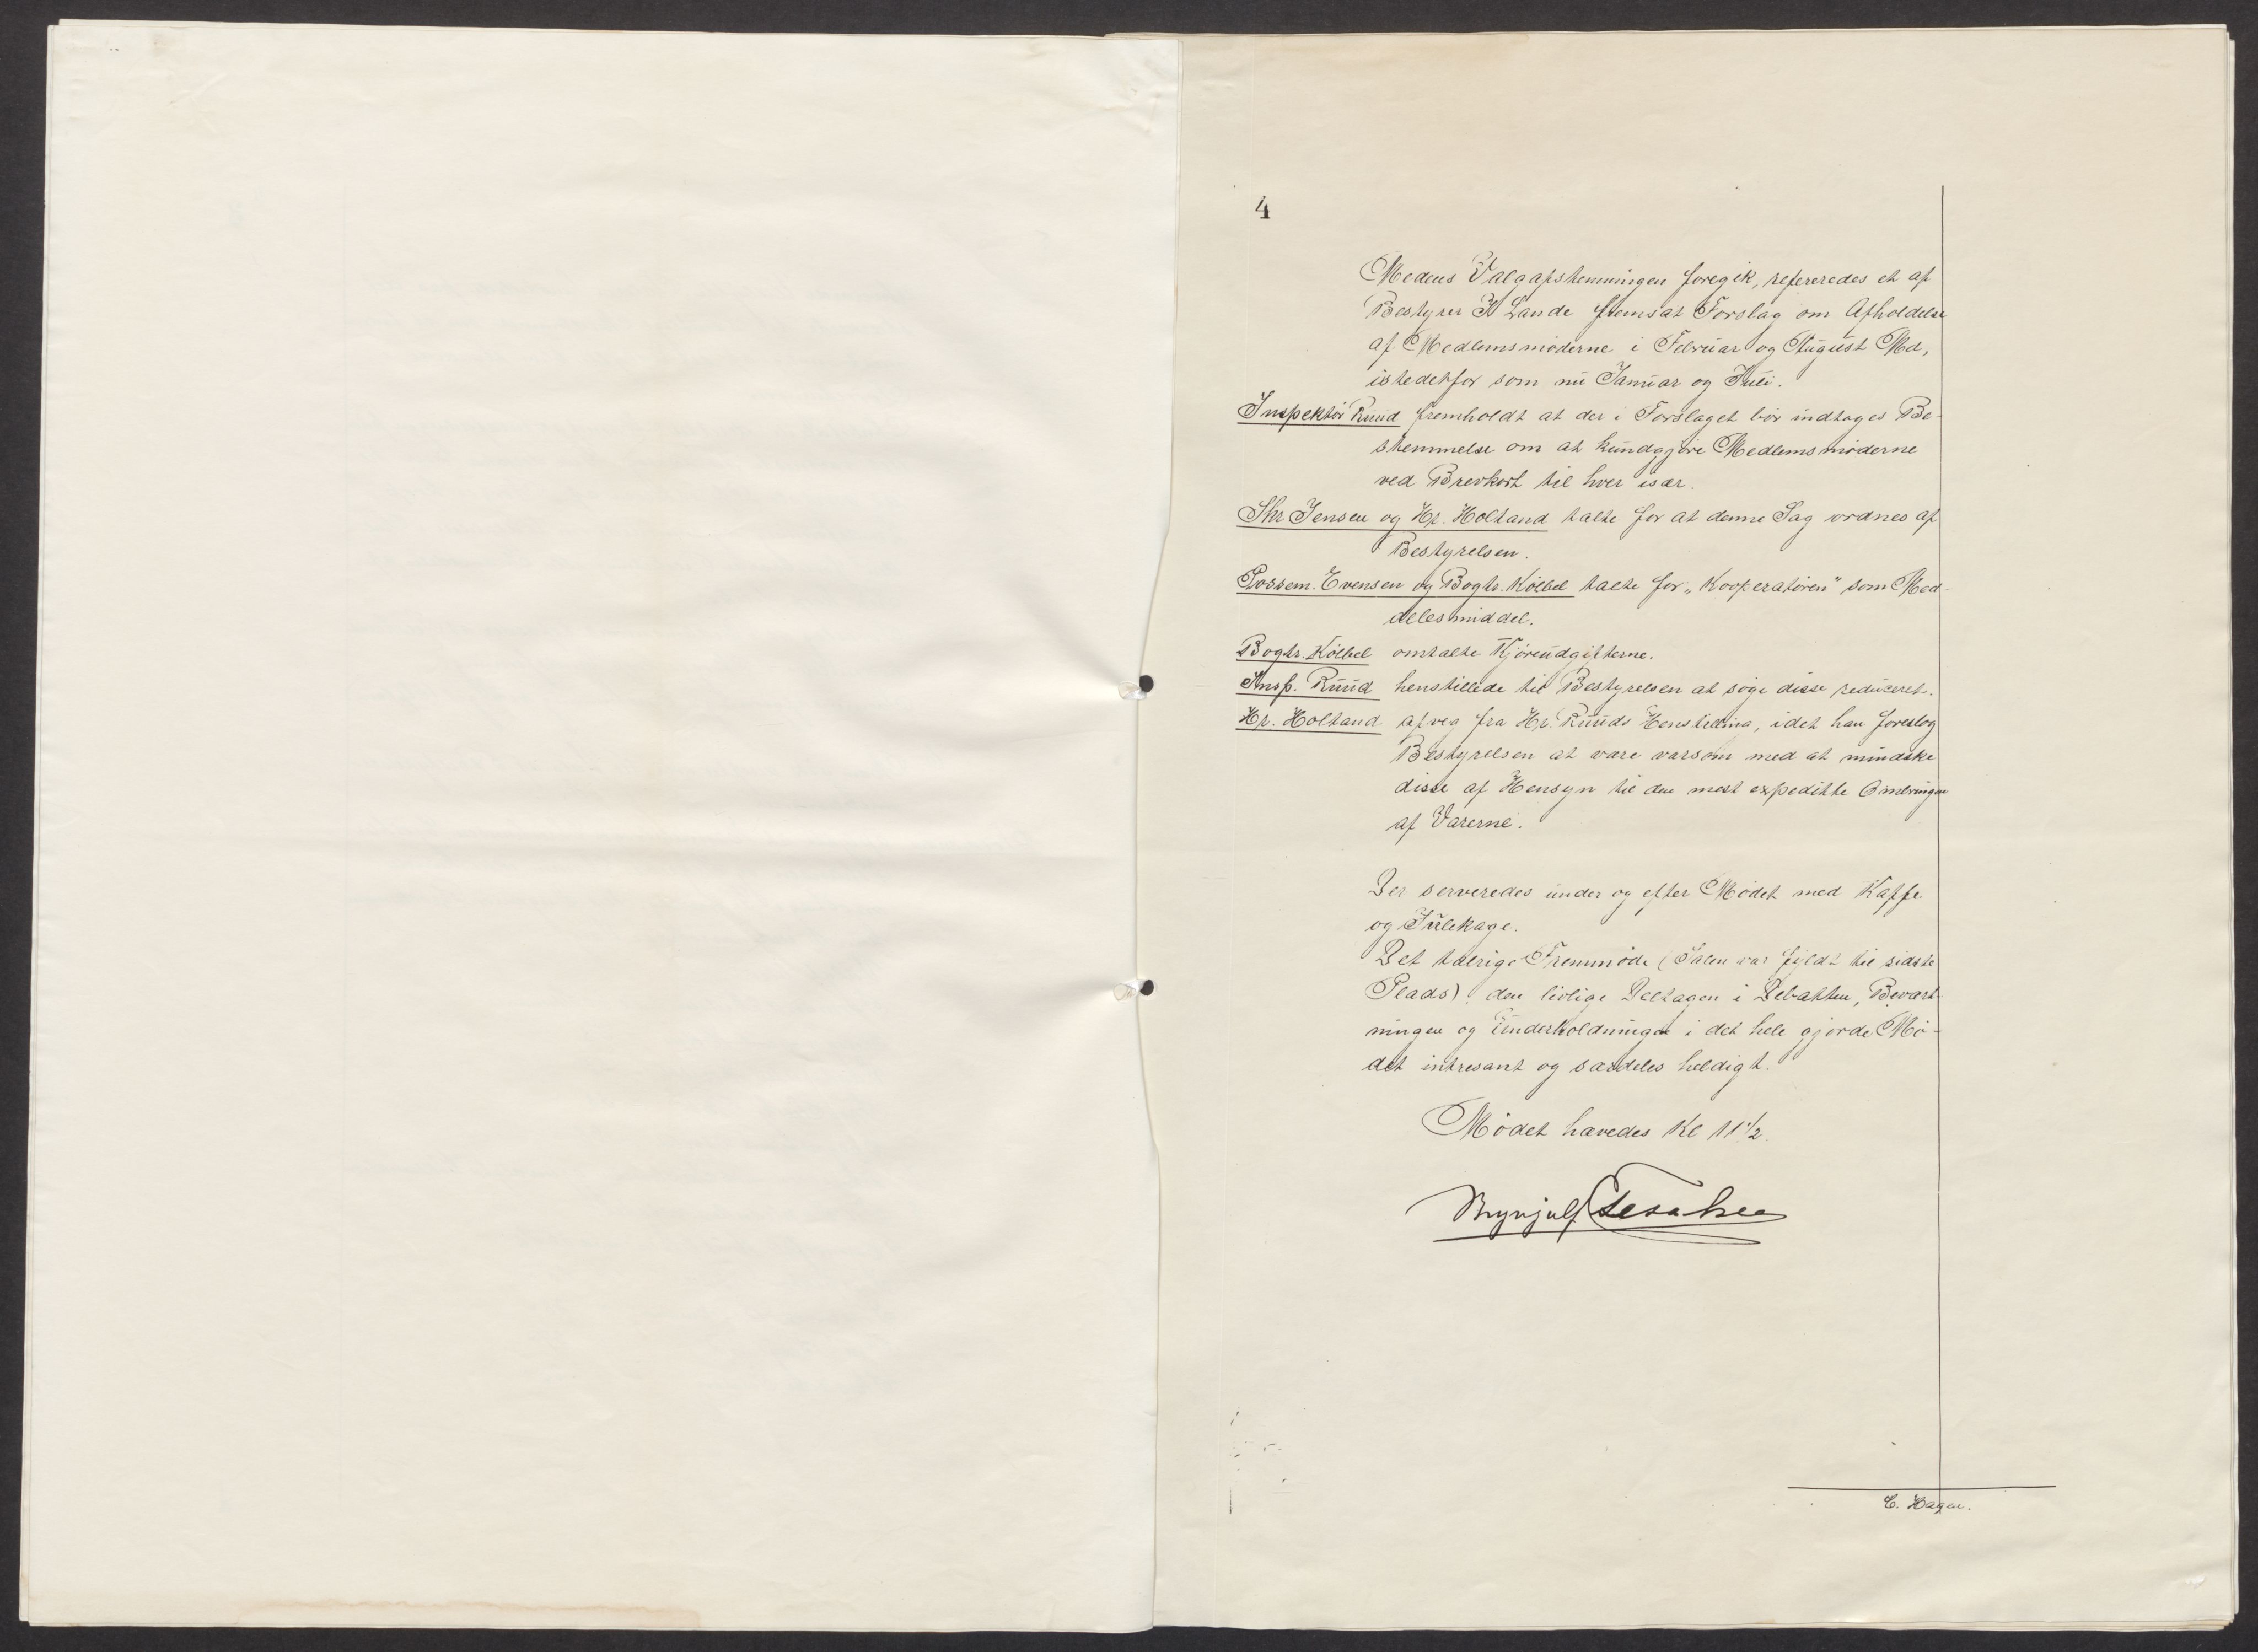 4
Medens Valgafstemningen foregik, refereredes et af
Bestyrer Lande fremsat Forslag om Afholdelse
af Medlemsmøderne i Februar og August Md,
istedetfor som nu Januar og Juli.
Inspektør Ruud fremholdt at der i Forslaget bør indtages Be-
stemmelse om at kundgjøre Medlemsmøderne
ved Brevkort til hver især.
Skr Jensen og Hr. Holtand talte for at denne Sag ordnes af
Bestyrelsen.
Evensen og Bogtr. Kölbel talte for "Kooperatøren" som Med-
delesmiddel.
Bogtr. Kölbel omtalte Kjøreudgifterne.
Insp. Ruud henstillede til Bestyrelsen at søge disse reduceret.
Hr. Holtand afveg fra Hr. Ruuds Henstilling, idet han foreslog
Bestyrelsen at være varsom med at mindske
disse af Hensyn til den mest expeditte Ombringen
af Varerne.
Der serveredes under og efter Mødet med Kaffe
og Julekage.
Det talrige Fremmøde (Salen var fyldt til sidste
Plads), den livlige Deltagen i Debatten, Bevært-
ningen og Underholdningen i det hele gjorde Mø-
det intresant og særdeles heldigt.
Mødet hævedes Kl 11 1/2.
Brynjulf
C. Hagen.